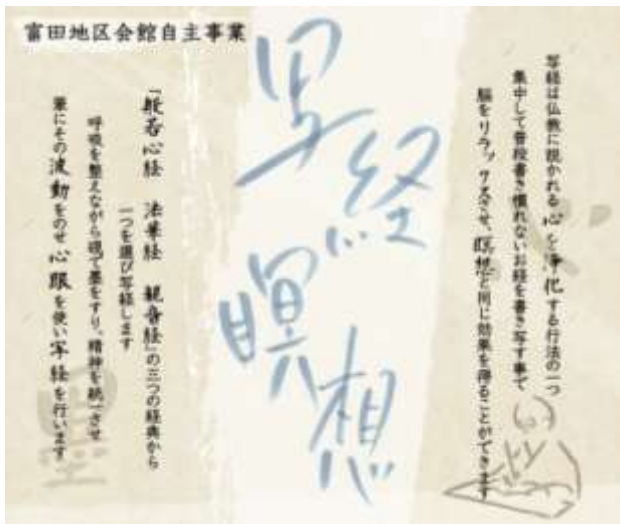 富田地区会館自主事業
写経瞑想
写経は仏教に説かれる心を浄化する行法の一つ
集中して普段書き慣れないお経を書き写す事で
脳をリラックスさせ、瞑想と同じ効果を得ることができます
「般若心経 法華経 観音経」の三つの経典から
一つを選び写経します
呼吸を整えながら硯で墨をすり、精神を統一させ
筆にその波動をのせ心眼を使い写経を行います
墨